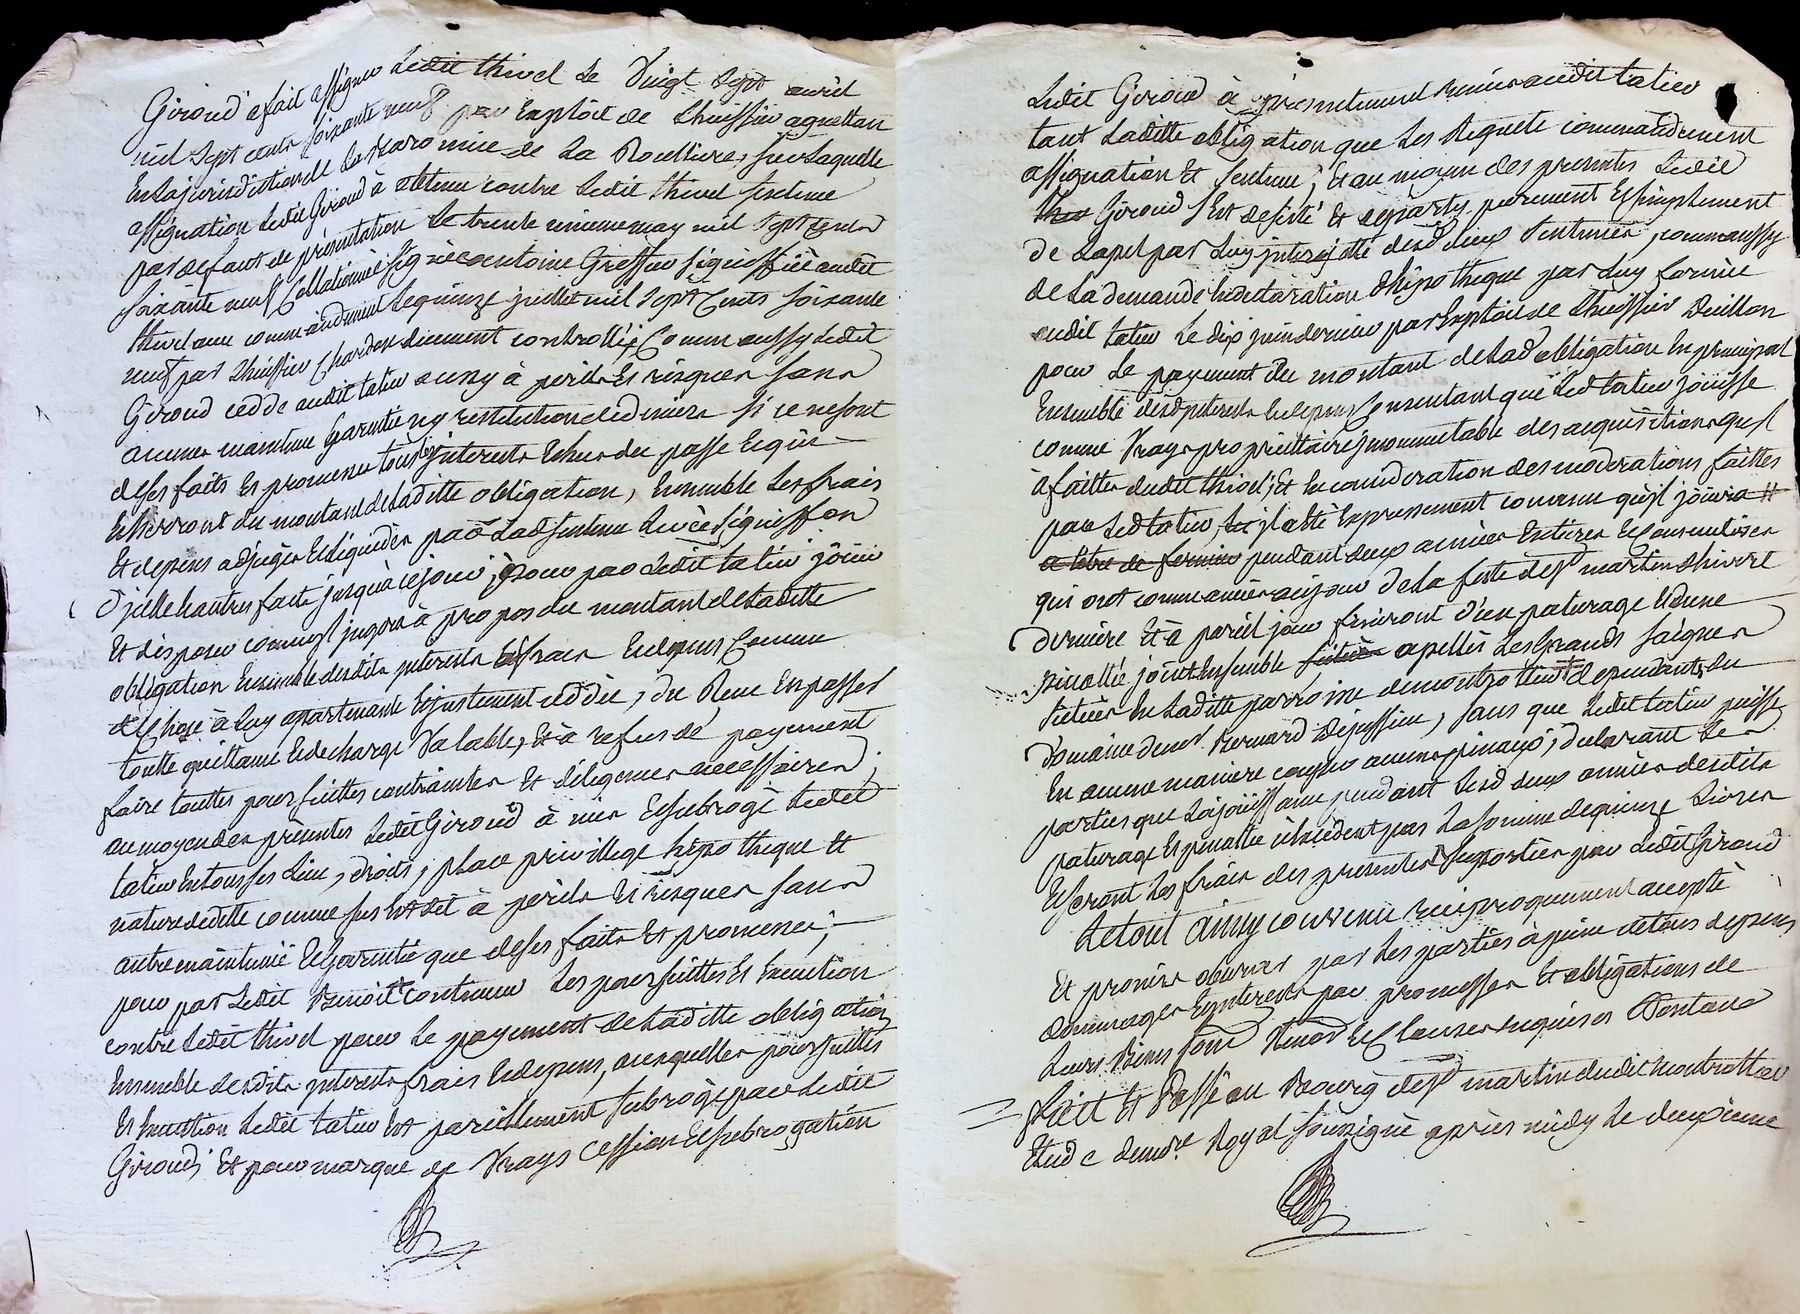 Giroud a fait assigner ledit thivel le Vingt Sept avril
mil Sept cents soixante neuf par Exploit de Lhuissier agnettan
En la jurisdiction de la Baronnie de La Roulliere, sur laquelle
assignation ledit Giroud à obtenu contre ledit thivel sentence
par defaut de présentation le trente uniemme may mil sept cents
soixante neuf Collationnée signée antoine Gresseu signiffiée audit
thivel avec commandement le quinze juillet mil sept Cents soixante
neuf par Lhuissier Chardon duement controllée, Comm aussy ledit
Giroud cedde audit tatieu au ny à perils et risques sans
aucunes maintenue Garantie ny restitution de deniers si ce ne sont
de ses faits et promesses tous les jnterests Echus du passe et qui
Echerront du montant de laditte obligation, Ensemble les frais
Et depens adjugés et liquidés par Lad sentence Sivée signiffon
d'jcelle et autres faits jusqu'à ce jour; pour par ledit tatieu joüir
Et disposer comm'jl jugera à propos du montant de laditte
obligation Ensemble desdits jnterests et frais Et depens Comme
de Chose à luy apartenante Et justement ceddée, du Reçu En passer
toutte quittance Et decharge Valable, Et à refus de payement
faire touttes poursuittes contraintes Et diligences necessaires;
au moyen des présentes ledit Giroud à mis Et subrogé ledit
tatieu En tous ses Lieu, droits, place privillege hipotheque Et
nature de dette comme sus Est dit à perils Et risques sans
autre maintenüe Et Garentie que de ses faits Et promesses;
pour par ledit Benoit continuer les poursuittes Et Execution
contre ledit thivel pour le payement de Laditte obligation
Ensemble desdits jnterests frais Et depens, ausquelles poursuittes
Et Execution ledit tatieu Est pareillement subrogé par ledit
Giroud; Et pour marque de Vraye cession Et subrogation
Ledit Giroud à présentement remis audit tatieu
tant Ladette obligation que les Requete commandement
assignation Et Sentence; Et au moyen des presentes ledit
thiv Giroud s'Est desisté Et departy purement Et simplement
de Lapel par Luy jnterjetté desd deux Sentences, comm aussy
de La demande En declaration d'hipotheque par Luy formée
audit tatieu le dix juin dernier par Exploit de Lhuissier Duillon
pour le payement du montant de Lad obligation En principal
Ensemble desd jnterests Et depens Consentant que led tatieu joüisse
comme Vraye proprietaire jncommutable des acquisitions qu'jl
à faittes dudit thivel; Et En consideration des moderations faittes
par led tatieu, jl a Eté Expressement convenu qu'jl joüira
a titre de fermier pendant deux années Entieres Et consecutives
qui ont commancé au jour de la feste de St martin d'hivert
derniere Et à pareil jour finiront d'un paturage Et d'une
pinattée joint Ensemble située apellés Les Grands Saignes
située En Laditte parroisse de montrottier dependants du
Domaine de mr. Bernard Dejussieu, sans que ledit tatieu puisse
En aucune maniere couper aucuns pinaux; declarant les
parties que La joüissance pendant Lesd deux années desdits
paturage Et penattée n'Excedent pas La somme de quinze Livres
Et seront les frais des presentes suportées par ledit Giroud
Le tout Ainsy convenu reciproquement accepté
Et promis observer par les parties à peine de tous depens
dommages Et jnterests par promesses Et obligations de
Leurs Biens soum Renon Et Clauses requises Dontacte
fait Et Passé au Bourg de St martin dudit montrottier
Etude du nore Royal soussigné après midy le deuxieme